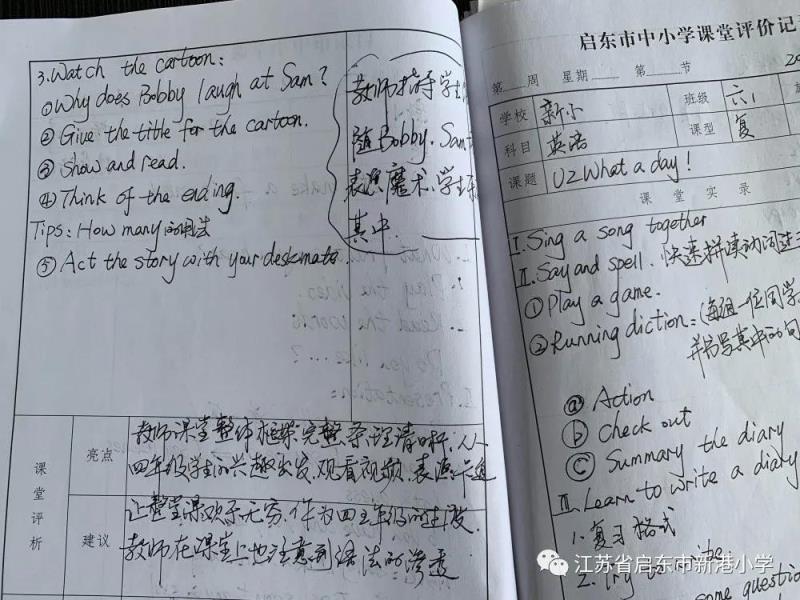 3. Watch the cartoon:
① Why does Bobby laugh at Sam?
② Give the title for the cartoon.
③ Show and read.
④ Think of the ending.
Tips: How many的用法
⑤ Act the story with your deskmate.
教师指导学生
随Bobby、Sam
表演魔术,学生
其中.
课堂评析
亮点
教师课堂整体框架完整,条理清晰,从
四年级学生的兴趣出发,观看视频,表演卡通
建议
让整堂课欢乐无穷.作为四五年级的
教师在课堂上也注意到语法的渗透
启东市中小学课堂评价记
第 周 星期 第 节
20
学校 新小 班级 六1
科目 英语 课型 复
课题 U2 What a day!
课堂实录
I. Sing a song together
II. Say and spell. 快速拼读动词
① Play a game.
② Running diction: (每组一位同学
并书写其中的句
ⓐ Action
ⓑ Check out
ⓒ Summary the diary
III. Learn to write a diary
1. 复习格式
2. Try to
some question
江苏省启东市新港小学